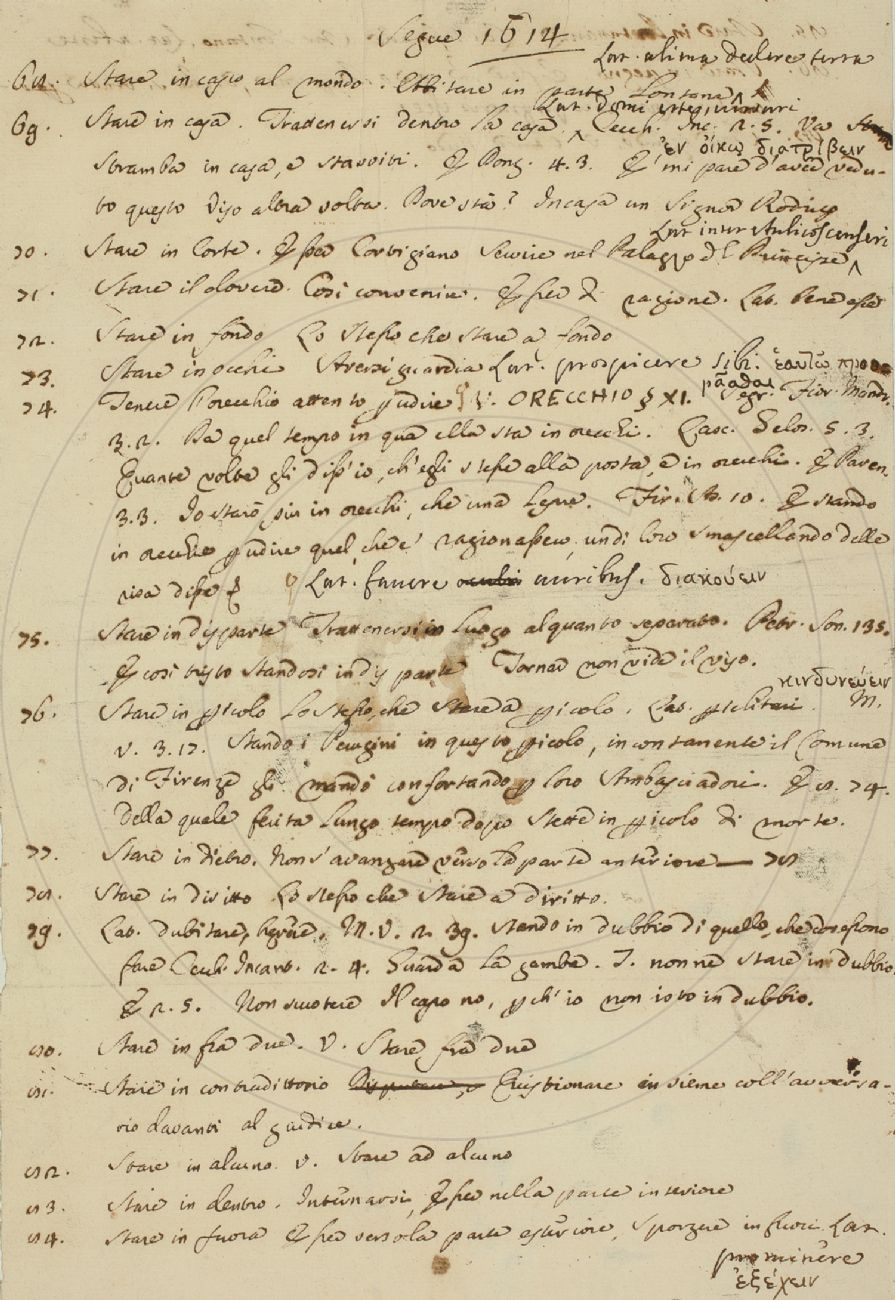 Segue 1614
Lat. ultima tellure terra
68. Stare in capo al mondo. Abitare in parte Lontana
Lat. domi urte, inveniri
69. Stare in casa. Trattenersi dentro la casa, Cecch. Inc. 2. 5. Va
ἐν οἴκῳ διατρίβειν
Stramba in casa, e stavviti. E Donz. 4. 3. E' mi pare d'aver vedu-
to questo viso altra volta. Dove sta? In casa un Signor Rodrigo
Lat. inter Aulicos censeri
70. Stare in Corte. Esser Cortigiano Servire nel Palazzo del Principe
71. Stare il dovere. Così convenire. Esser di ragione. Lat. bene esse
72. Stare in fondo Lo stesso che stare a fondo
73. Stare in occhi Aversi guardia Lat. prospicere sibi. ἑαυτῷ προο
ρᾶσθαι
74. Tenere l'orecchio attento per udire V. ORECCHIO § XI. Segr. Fior. Mandr.
3. 2. Da quel tempo in qua ella sta in orecchi. Lasc. Gelos. 5. 3.
Quante volte gli diss' io, ch'egli stesse alla posta, e in orecchi. E Paren.
3. 3. Io starò più in orecchi, che una Lepre. Fir. As. 10. E stando
in orecchio per udire quel, che e' ragionassero, un di loro smascellando delle
risa disse Lat. favere auribus. διακούειν
75. Stare in disparte Trattenersi in Luogo alquanto separato. Petr. Son. 135.
E così tristo standosi in disparte Tornar non vide il viso.
κινδυνεύειν
76. Stare in pericolo Lo stesso, che Stare a pericolo. Lat. periclitari. M.
V. 3. 17. Stando i Perugini in questo pericolo, incontanente il Comune
di Firenze gli mandò confortando per loro Ambasciadori. E 8. 74.
della quale ferita lungo tempo dopo stette in pericolo di morte.
77. Stare in dietro. Non s'avanzare verso la parte anteriore — 78
78. Stare in diritto Lo stesso che stare a diritto.
79. Lat. dubitare, hærere. M. V. 2. 39. stando in dubbio di quello, che dovessono
fare Cecch. Incant. 2. 4. Guarda la gamba. T. non ne stare in dubbio.
E 2. 5. Non scuotere Il capo no, perch' io non isto in dubbio.
80. Stare in fra due. V. Stare fra due
81. Stare in contradittorio Quistionare insieme coll'avversa-
rio davanti al giudice.
82. Stare in alcuno. V. Stare ad alcuno
83. Stare in dentro. Internarsi, Esser nella parte interiore
84. Stare in fuora Esser verso la parte esteriore, Sporgere in fuori. Lat.
prominere
ἐξέχειν